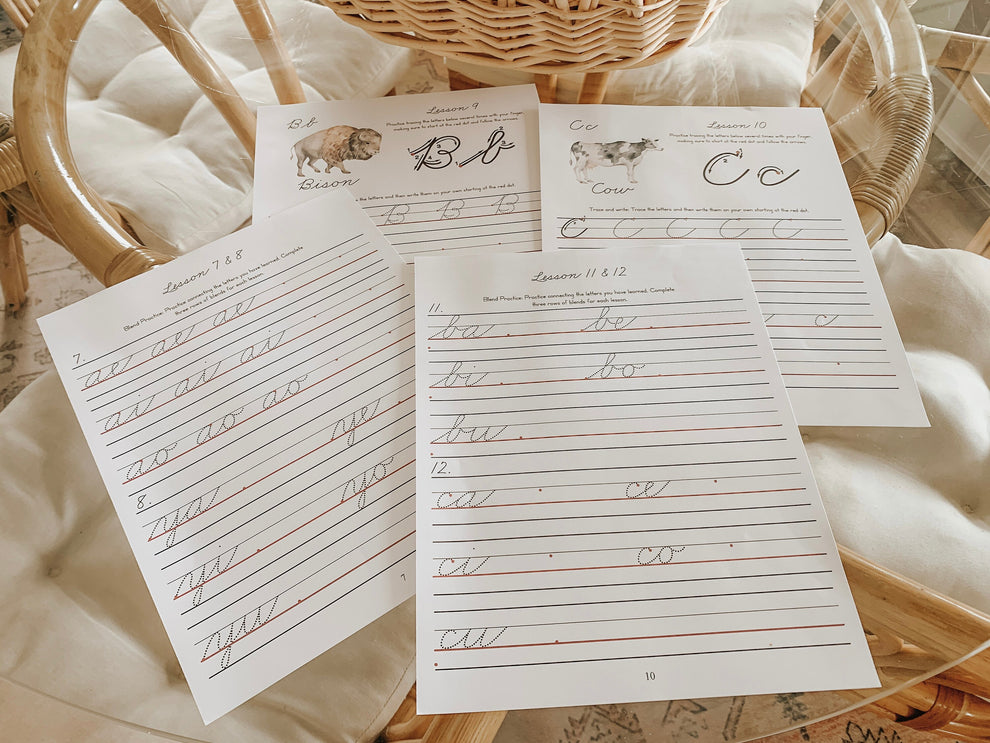 Lesson 9
Bb
Practice tracing the letters below several times with your finger,
making sure to start at the red dot and follow the arrows.
B b
Bison
the letters and then write them on your own starting at the red dot.
B B B
Lesson 10
Cc
Practice tracing the letters below several times with your finger,
making sure to start at the red dot and follow the arrows.
C c
Cow
Trace and write. Trace the letters and then write them on your own starting at the red dot.
C C C C C
c
Lesson 7 & 8
Blend Practice: Practice connecting the letters you have learned. Complete
three rows of blends for each lesson.
7.
ae ae ae
ai ai ai
ao ao ao
8.
ya ye
yi yo
yu
7
Lesson 11 & 12
Blend Practice: Practice connecting the letters you have learned. Complete
three rows of blends for each lesson.
11.
ba be
bi bo
bu
12.
ca ce
ci co
cu
10